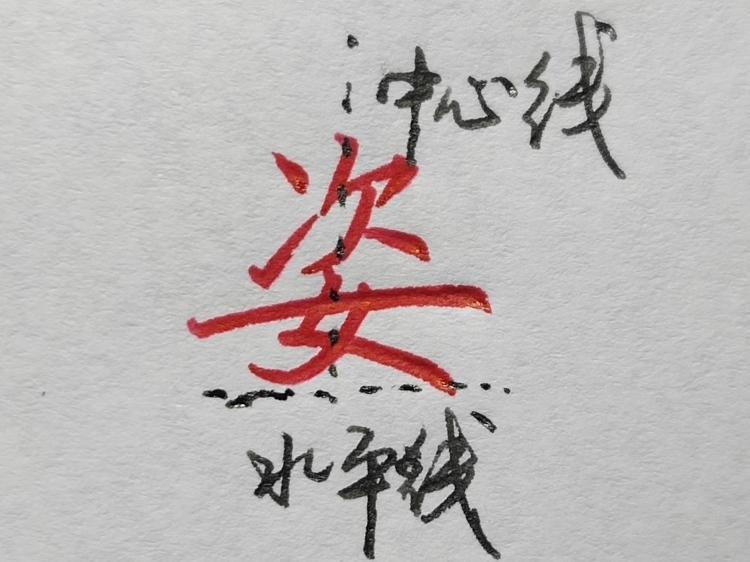 中心线
姿
水平线